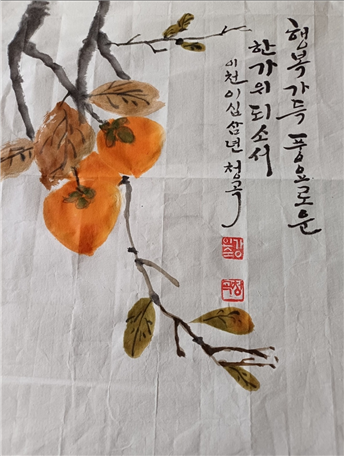 행복가득 풍요로운
한가위 되소서
이천이십삼년 청곡